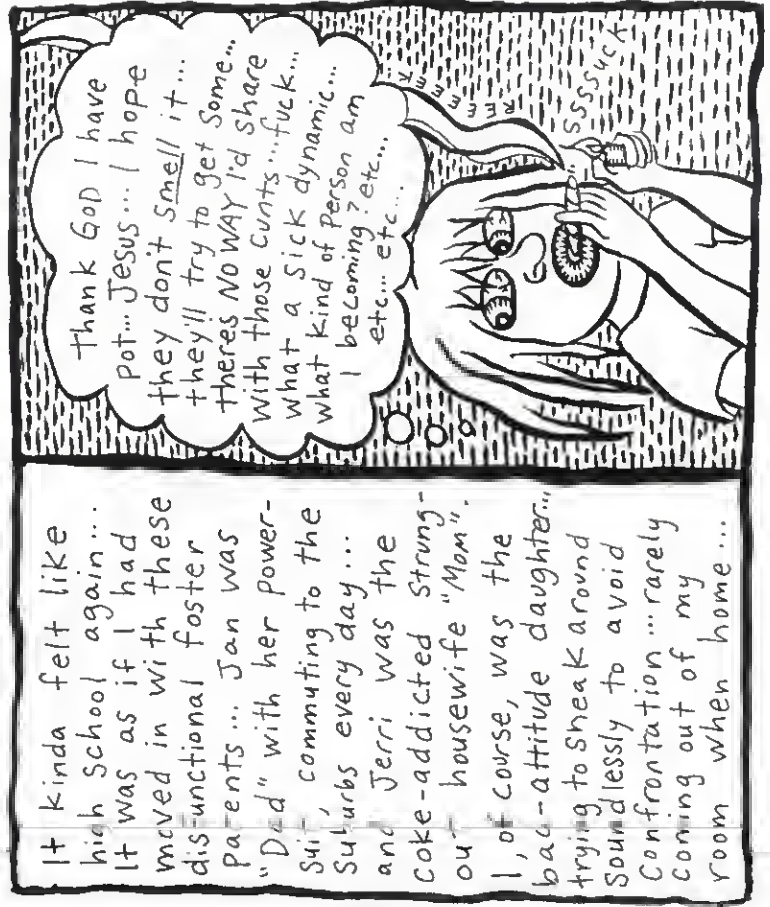 It kinda felt like
high school again...
It was as if I had
moved in with these
disfunctional foster
parents... Jan was
"Dad" with her power-
suit, commuting to the
suburbs every day...
and Jerri was the
coke-addicted strung-
out housewife "Mom".
I, of course, was the
bad-attitude daughter...
trying to sneak around
soundlessly to avoid
confrontation...rarely
coming out of my
room when home...
Thank GOD I have
pot... Jesus... I hope
they don't smell it...
they'll try to get some...
theres NO WAY I'd share
with those cunts...fuck...
what a sick dynamic...
what kind of person am
I becoming? etc...
etc... etc...
REEEEK
SSSSUCK